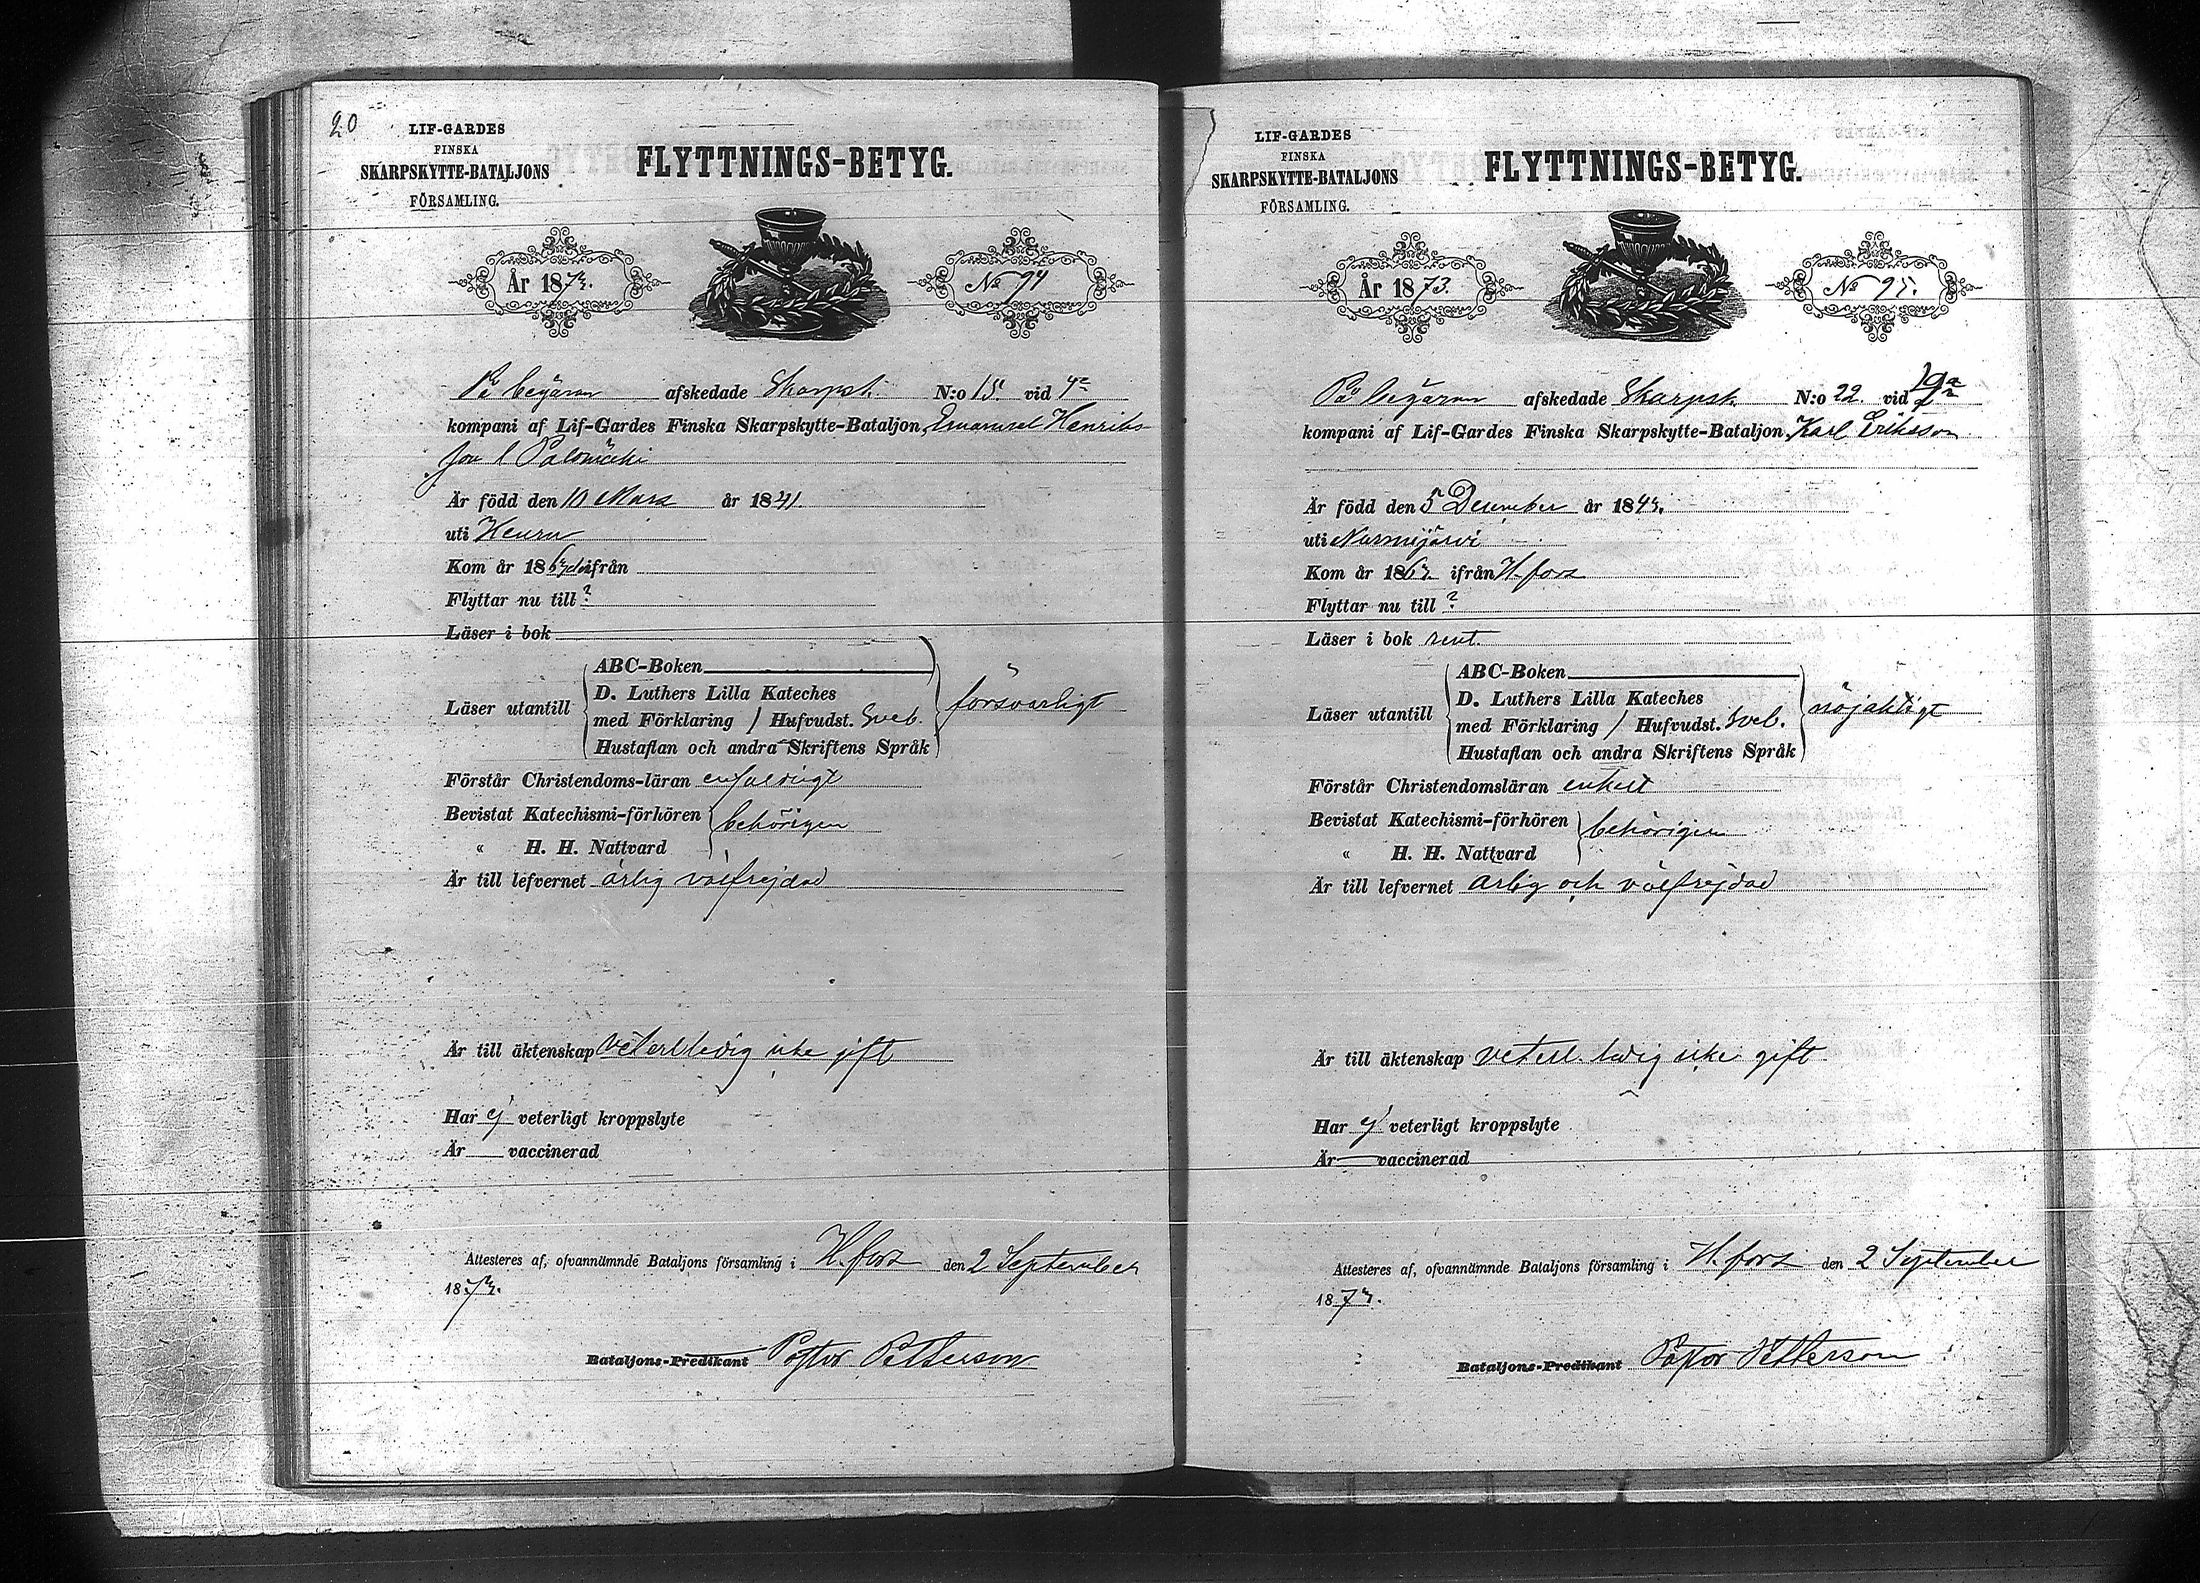 20
LIF-GARDES
FINSKA
SKARPSKYTTE-BATALJONS
FÖRSAMLING.
FLYTTNINGS-BETYG.
År 1873.
No 94
På begäran afskedade Skarpsk. N:o 15. vid 4de
kompani af Lif-Gardes Finska Skarpskytte-Bataljon, Emanuel Henriks-
son l Palomäki
Är född den 10 Mars år 1841.
uti Keuru
Kom år 1867 ifrån
Flyttar nu till ?
Läser i bok
ABC-Boken
D. Luthers Lilla Kateches
Läser utantill
med Förklaring / Hufvudst. Sveb. försvarligt
Hustaflan och andra Skriftens Språk
Förstår Christendoms-läran enfaldigt
Bevistat Katechismi-förhören behörigen
« H. H. Nattvard
Är till lefvernet ärlig välfrejdad
Är till äktenskap veterl. ledig icke gift
Har ej veterligt kroppslyte
Är vaccinerad
Attesteres af, ofvannämnde Bataljons församling i H.fors den 2 September
1873.
Bataljons-Predikant Pastor Petterson
LIF-GARDES
FINSKA
SKARPSKYTTE-BATALJONS
FÖRSAMLING.
FLYTTNINGS-BETYG.
År 1873.
No 95.
På begäran afskedade Skarpsk. N:o 22. vid
kompani af Lif-Gardes Finska Skarpskytte-Bataljon, Karl Eriksson
Är född den 5 December år 1843.
uti Nurmijärvi
Kom år 1867 ifrån H.fors
Flyttar nu till ?
Läser i bok rent.
ABC-Boken
D. Luthers Lilla Kateches
Läser utantill
med Förklaring / Hufvudst. Sveb. nöjaktigt
Hustaflan och andra Skriftens Språk
Förstår Christendomsläran enkelt
Bevistat Katechismi-förhören behörigen
« H. H. Nattvard
Är till lefvernet ärlig och välfrejdad
Är till äktenskap veterl. ledig icke gift
Har ej veterligt kroppslyte
Är vaccinerad
Attesteres af, ofvannämnde Bataljons församling i H.fors den 2 September
1873.
Bataljons-Predikant Pastor Petterson